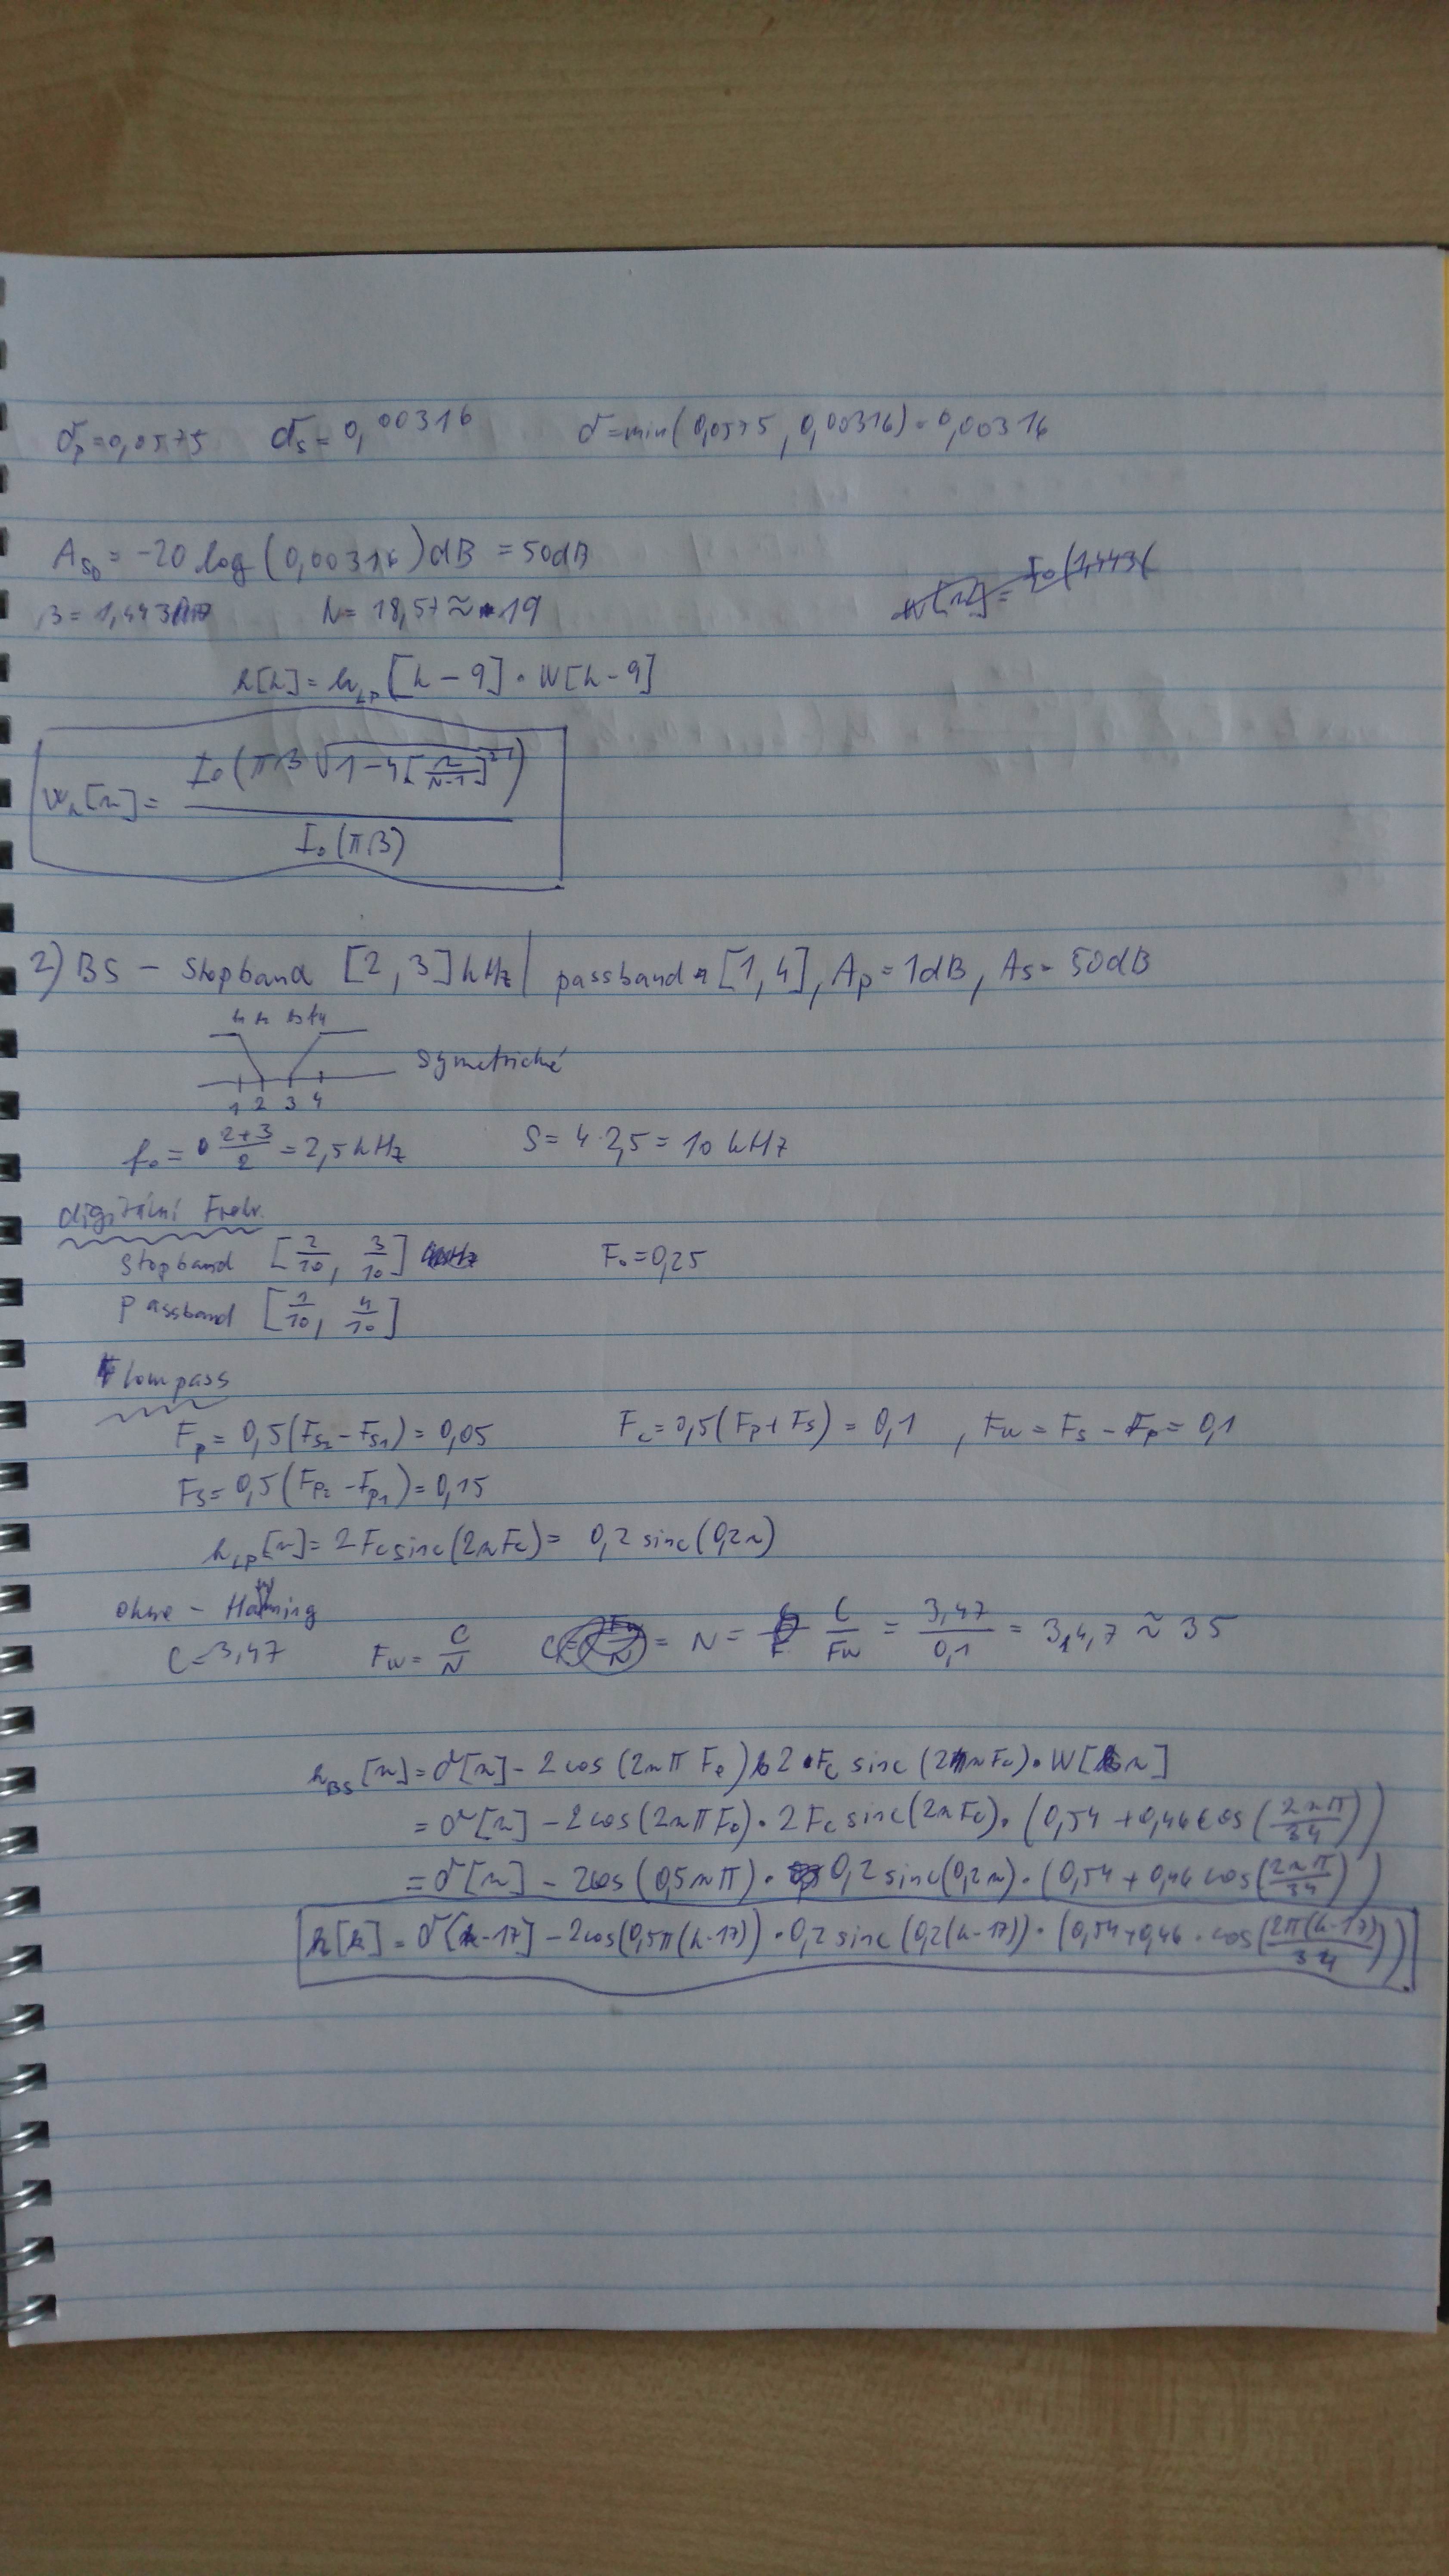 δp = 0,0575 δs = 0,00316 δ = min(0,0575, 0,00316) = 0,00316
As0 = -20 log(0,00316) dB = 50dB
β = 1,443 N = 18,57 ≈ 19
w[n] = I0(1,443(
h[k] = hLP[k-9] · W[k-9]
wk[n] = I0(πβ √(1-4[n/(N-1)]²)) / I0(πβ)
2) BS - Stopband [2, 3] kHz | passband [1, 4], Ap = 1dB, As = 50dB
f1 f2 f3 f4
symetrické
1 2 3 4
f0 = (2+3)/2 = 2,5 kHz S = 4·2,5 = 10 kHz
digitální Frekv.
Stopband [2/10, 3/10] F0 = 0,25
Passband [1/10, 4/10]
Fp = 0,5(Fs2 - Fs1) = 0,05 Fc = 0,5(Fp + Fs) = 0,1 , Fw = Fs - Fp = 0,1
Fs = 0,5(Fp2 - Fp1) = 0,15
hLP[n] = 2Fc sinc(2nFc) = 0,2 sinc(0,2n)
C = 3,47 Fw = C/N = N = C/Fw = 3,47/0,1 = 34,7 ≈ 35
hBS[n] = δ[n] - 2cos(2nπF0) 2·Fc sinc(2nFc)·W[n]
= δ[n] - 2cos(2nπF0)·2Fc sinc(2nFc)·(0,54 + 0,46 cos(2nπ/34))
= δ[n] - 2cos(0,5nπ)·0,2 sinc(0,2n)·(0,54 + 0,46 cos(2nπ/34))
h[k] = δ[k-17] - 2cos(0,5π(k-17))·0,2 sinc(0,2(k-17))·(0,54 + 0,46·cos(2π(k-17)/34))